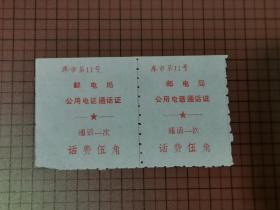 库市第11号 库市第11号
邮电局 邮电局
公用电话通话证 公用电话通话证
通话一次 通话一次
话费伍角 话费伍角